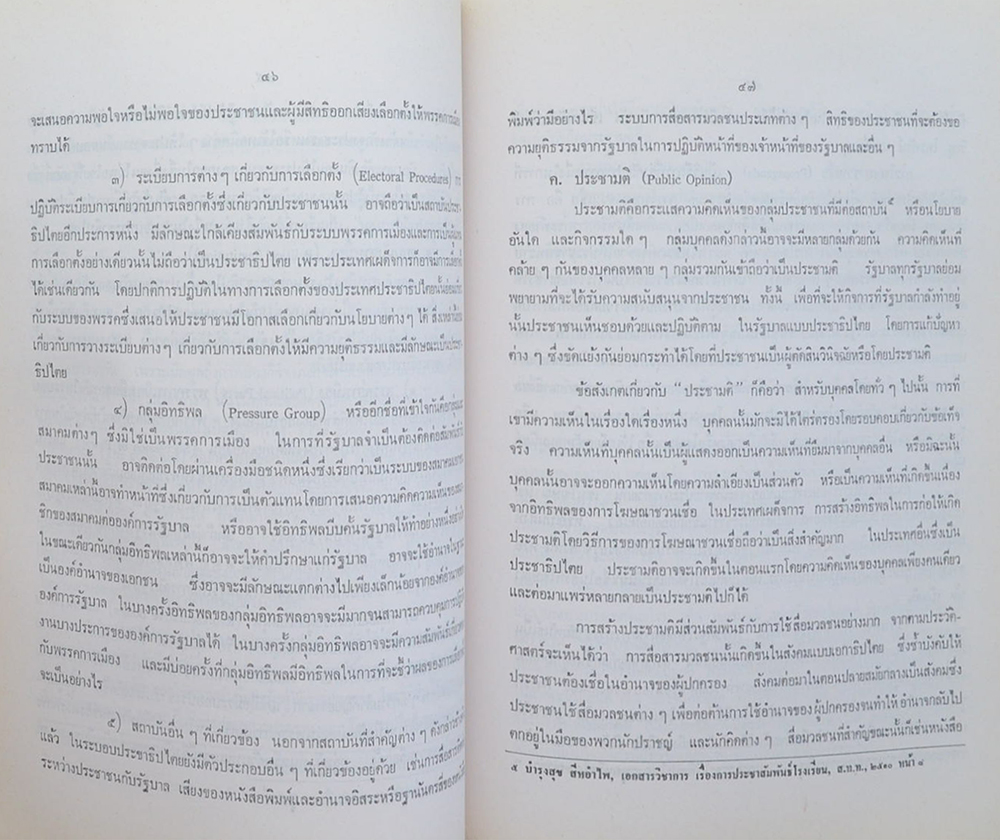 ๔๖
จะเสนอความพอใจหรือไม่พอใจของประชาชนและผู้มีสิทธิออกเสียงเลือกตั้งให้พรรคการเมือง
ทราบได้
๓) ระเบียบการต่างๆ เกี่ยวกับการเลือกตั้ง (Electoral Procedures)
ปฏิบัติระเบียบการเกี่ยวกับการเลือกตั้งซึ่งเกี่ยวกับประชาชนนั้น อาจถือว่าเป็นสถาบันประชา-
ธิปไตยอีกประการหนึ่ง มีลักษณะใกล้เคียงสัมพันธ์กับระบบพรรคการเมืองและการ
การเลือกตั้งอย่างเดียวนั้นไม่ถือว่าเป็นประชาธิปไตย เพราะประเทศเผด็จการก็อาจมีการ
ได้เช่นเดียวกัน โดยปกติการปฏิบัติในทางการเลือกตั้งของประเทศประชาธิปไตยนั้น
กับระบบของพรรคซึ่งเสนอให้ประชาชนมีโอกาสเลือกเกี่ยวกับนโยบายต่างๆ ได้ สิ่งเหล่านี้
เกี่ยวกับการวางระเบียบต่างๆ เกี่ยวกับการเลือกตั้งให้มีความยุติธรรมและมีลักษณะเป็นประชา-
ธิปไตย
๔) กลุ่มอิทธิพล (Pressure Group) หรืออกชื่อที่เข้าใจกันคือกลุ่ม
สมาคมต่างๆ ซึ่งมิใช่เป็นพรรคการเมือง ในการที่รัฐบาลจำเป็นต้องติดต่อสัมพันธ์กับ
ประชาชนนั้น อาจติดต่อโดยผ่านเครื่องมือชนิดหนึ่งซึ่งเรียกว่าเป็นระบบของสมาคม
สมาคมเหล่านี้อาจทำหน้าที่ซึ่งเกี่ยวกับการเป็นตัวแทนโดยการเสนอความคิดความเห็นของ
ชิกของสมาคมต่อองค์การรัฐบาล หรืออาจใช้อิทธิพลบีบคั้นรัฐบาลให้ทำอย่างหนึ่ง
ในขณะเดียวกันกลุ่มอิทธิพลเหล่านี้ก็อาจจะให้คำปรึกษาแก่รัฐบาล อาจจะใช้อำนาจในฐานะ
เป็นองค์อำนาจของเอกชน ซึ่งอาจจะมีลักษณะแตกต่างไปเพียงเล็กน้อยจากองค์อำนาจ
องค์การรัฐบาล ในบางครั้งอิทธิพลของกลุ่มอิทธิพลอาจจะมีมากจนสามารถควบคุมการปฏิบัติ
งานบางประการขององค์การรัฐบาลได้ ในบางครั้งกลุ่มอิทธิพลอาจจะมีความสัมพันธ์
กับพรรคการเมือง และมีบ่อยครั้งที่กลุ่มอิทธิพลมีอิทธิพลในการที่จะชี้ว่าผลของการ
จะเป็นอย่างไร
๕) สถาบันอื่นๆ ที่เกี่ยวข้อง นอกจากสถาบันที่สำคัญต่างๆ ดังกล่าว
แล้ว ในระบอบประชาธิปไตยยังมีตัวประกอบอื่นๆ ที่เกี่ยวข้องอยู่ด้วย เช่นการสื่อสาร
ระหว่างประชาชนกับรัฐบาล เสียงของหนังสือพิมพ์และอำนาจอิสระหรือฐานันดรสี่ของ
๔๗
พิมพ์ว่ามีอย่างไร ระบบการสื่อสารมวลชนประเภทต่างๆ สิทธิของประชาชนที่จะต้องขอ
ความยุติธรรมจากรัฐบาลในการปฏิบัติหน้าที่ของเจ้าหน้าที่ของรัฐบาลและอื่นๆ
ค. ประชามติ (Public Opinion)
ประชามติคือกระแสความคิดเห็นของกลุ่มประชาชนที่มีต่อสถาบัน๕ หรือนโยบาย
อันใด และกิจกรรมใดๆ กลุ่มบุคคลดังกล่าวนี้อาจมีหลายกลุ่มด้วยกัน ความคิดเห็นที่
คล้ายๆ กันของบุคคลหลายๆ กลุ่มรวมกันเข้าถือว่าเป็นประชามติ รัฐบาลทุกรัฐบาลย่อม
พยายามที่จะได้รับความสนับสนุนจากประชาชน ทั้งนี้ เพื่อที่จะให้กิจการที่รัฐบาลกำลังทำอยู่
นั้นประชาชนเห็นชอบด้วยและปฏิบัติตาม ในรัฐบาลแบบประชาธิปไตย โดยการแก้ปัญหา
ต่างๆ ซึ่งขัดแย้งกันย่อมกระทำได้โดยที่ประชาชนเป็นผู้ตัดสินวินิจฉัยหรือโดยประชามติ
ข้อสังเกตเกี่ยวกับ “ประชามติ” ก็คือว่า สำหรับบุคคลโดยทั่วๆ ไปนั้น การที่
เขามีความเห็นในเรื่องใดเรื่องหนึ่ง บุคคลนั้นมักจะมิได้ไตร่ตรองโดยรอบคอบเกี่ยวกับข้อเท็จ
จริง ความเห็นที่บุคคลนั้นเป็นผู้แสดงออกเป็นความเห็นที่ยืมมาจากบุคคลอื่น หรือมิฉะนั้น
บุคคลนั้นอาจจะออกความเห็นโดยความลำเอียงเป็นส่วนตัว หรือเป็นความเห็นที่เกิดขึ้นเนื่อง
จากอิทธิพลของการโฆษณาชวนเชื่อ ในประเทศเผด็จการ การสร้างอิทธิพลในการก่อให้เกิด
ประชามติโดยวิธีการของการโฆษณาชวนเชื่อถือว่าเป็นสิ่งสำคัญมาก ในประเทศอื่นซึ่งเป็น
ประชาธิปไตย ประชามติอาจจะเกิดขึ้นในตอนแรกโดยความคิดเห็นของบุคคลเพียงคนเดียว
และต่อมาแพร่หลายกลายเป็นประชามติไปก็ได้
การสร้างประชามติมีส่วนสัมพันธ์กับการใช้สื่อมวลชนอย่างมาก จากตามประวัติ-
ศาสตร์จะเห็นได้ว่า การสื่อสารมวลชนนั้นเกิดขึ้นในสังคมแบบเอกาธิปไตย ซึ่งซ้ำบังคับให้
ประชาชนต้องเชื่อในอำนาจของผู้ปกครอง สังคมต่อมาในตอนปลายสมัยกลางเป็นสังคมซึ่ง
ประชาชนใช้สื่อมวลชนต่างๆ เพื่อต่อต้านการใช้อำนาจของผู้ปกครองจนทำให้อำนาจกลับไป
ตกอยู่ในมือของพวกนักปราชญ์ และนักคิดต่างๆ สื่อมวลชนที่สำคัญขณะนั้นก็เช่นหนังสือ
๕ บำรุงสุข สีหอำไพ, เอกสารวิชาการ เรื่องการประชาสัมพันธ์โรงเรียน, ส.ห.ท., ๒๕๑๐ หน้า ๙